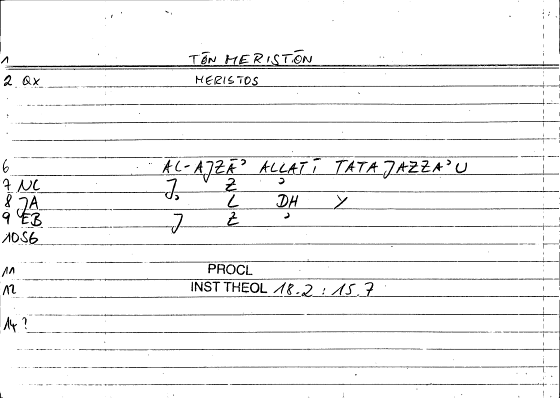 1 TŌN MERISTŌN
2 QX MERISTOS
6 AL-AJZĀʾ ALLATĪ TATAJAZZAʾU
7 NC J Z ʾ
8 JA L DH Y
9 EB J Z ʾ
10 56
11 PROCL
12 INST THEOL 18.2 : 15.7
14 ?